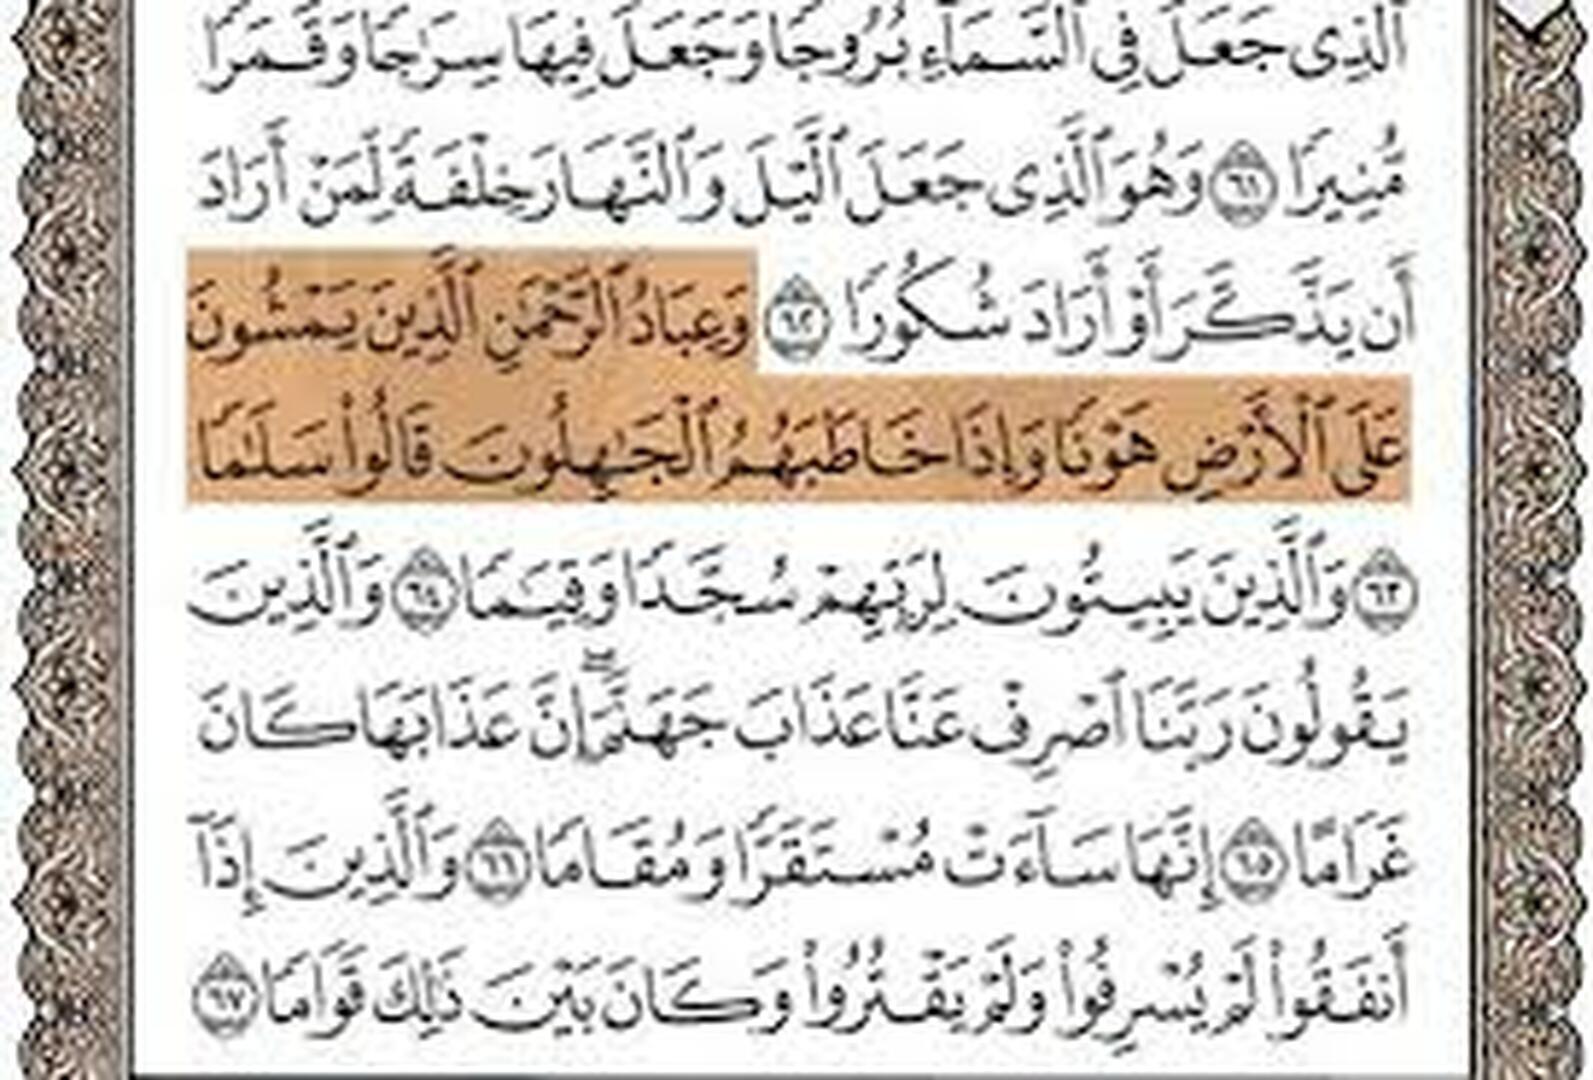 ٱلَّذِى جَعَلَ فِى ٱلسَّمَآءِ بُرُوجًا وَجَعَلَ فِيهَا سِرَٰجًا وَقَمَرًا
مُّنِيرًا ٦١ وَهُوَ ٱلَّذِى جَعَلَ ٱلَّيْلَ وَٱلنَّهَارَ خِلْفَةً لِّمَنْ أَرَادَ
أَن يَذَّكَّرَ أَوْ أَرَادَ شُكُورًا ٦٢ وَعِبَادُ ٱلرَّحْمَٰنِ ٱلَّذِينَ يَمْشُونَ
عَلَى ٱلْأَرْضِ هَوْنًا وَإِذَا خَاطَبَهُمُ ٱلْجَٰهِلُونَ قَالُوا۟ سَلَٰمًا
٦٣ وَٱلَّذِينَ يَبِيتُونَ لِرَبِّهِمْ سُجَّدًا وَقِيَٰمًا ٦٤ وَٱلَّذِينَ
يَقُولُونَ رَبَّنَا ٱصْرِفْ عَنَّا عَذَابَ جَهَنَّمَ ۖ إِنَّ عَذَابَهَا كَانَ
غَرَامًا ٦٥ إِنَّهَا سَآءَتْ مُسْتَقَرًّا وَمُقَامًا ٦٦ وَٱلَّذِينَ إِذَآ
أَنفَقُوا۟ لَمْ يُسْرِفُوا۟ وَلَمْ يَقْتُرُوا۟ وَكَانَ بَيْنَ ذَٰلِكَ قَوَامًا ٦٧